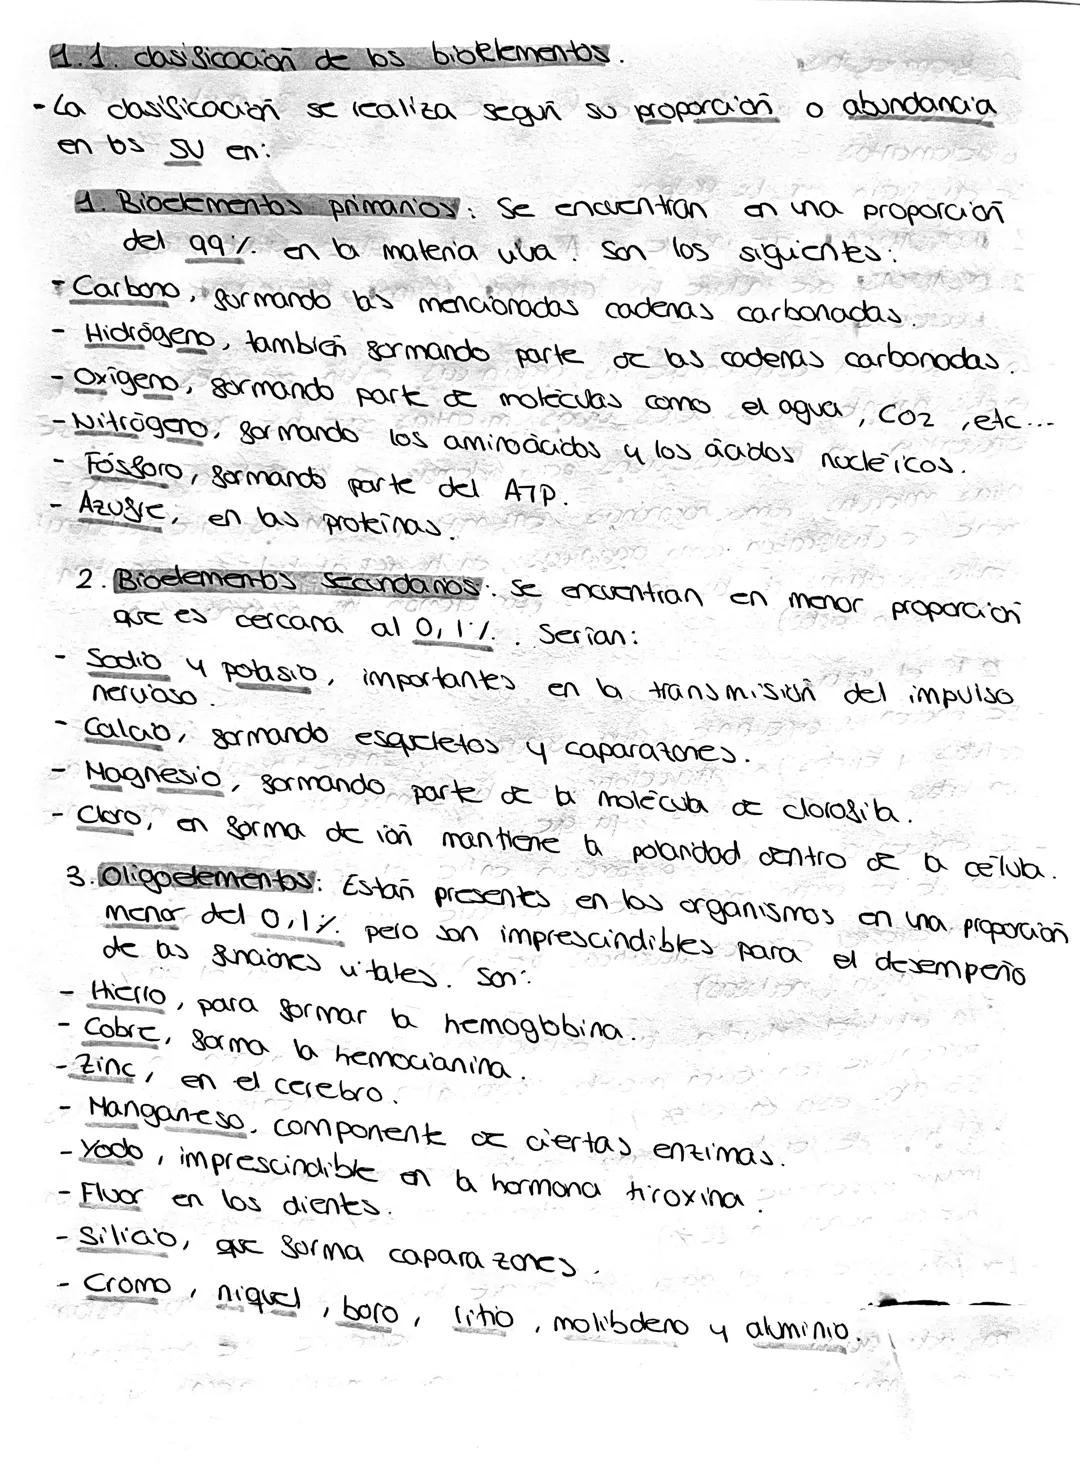 1.1. clasificación de los bioelementos.
- La clasificación se realiza según su proporción o abundancia
en los SV en:
1. Bioelementos primarios: Se encuentran en una proporción
del 99% en la materia viva. Son los siguientes:
- Carbono, formando las mencionadas cadenas carbonadas.
- Hidrógeno, también formando parte de las cadenas carbonadas.
- Oxígeno, formando parte de moléculas como el agua, CO2, etc...
- Nitrógeno, formando los aminoácidos y los ácidos nucleicos.
- Fósforo, formando parte del ATP.
- Azufre, en las proteínas.
2. Bioelementos secundarios: Se encuentran en menor proporción
que es cercana al 0,1%. Serían:
- Sodio y potasio, importantes en la transmisión del impulso
nervioso.
- Calcio, formando esqueletos y caparazones.
- Magnesio, formando parte de la molécula de clorofila.
- Cloro, en forma de ión mantiene la polaridad dentro de la célula.
3. Oligoelementos: Están presentes en los organismos en una proporción
menor del 0,1% pero son imprescindibles para el desempeño
de las funciones vitales. Son:
- Hierro, para formar la hemoglobina.
- Cobre, forma la hemocianina.
- Zinc, en el cerebro.
- Manganeso, componente de ciertas enzimas.
- Yodo, imprescindible en la hormona tiroxina.
- Fluor en los dientes.
- Silicio, que forma caparazones.
- Cromo, niquel, boro, litio, molibdeno y aluminio.